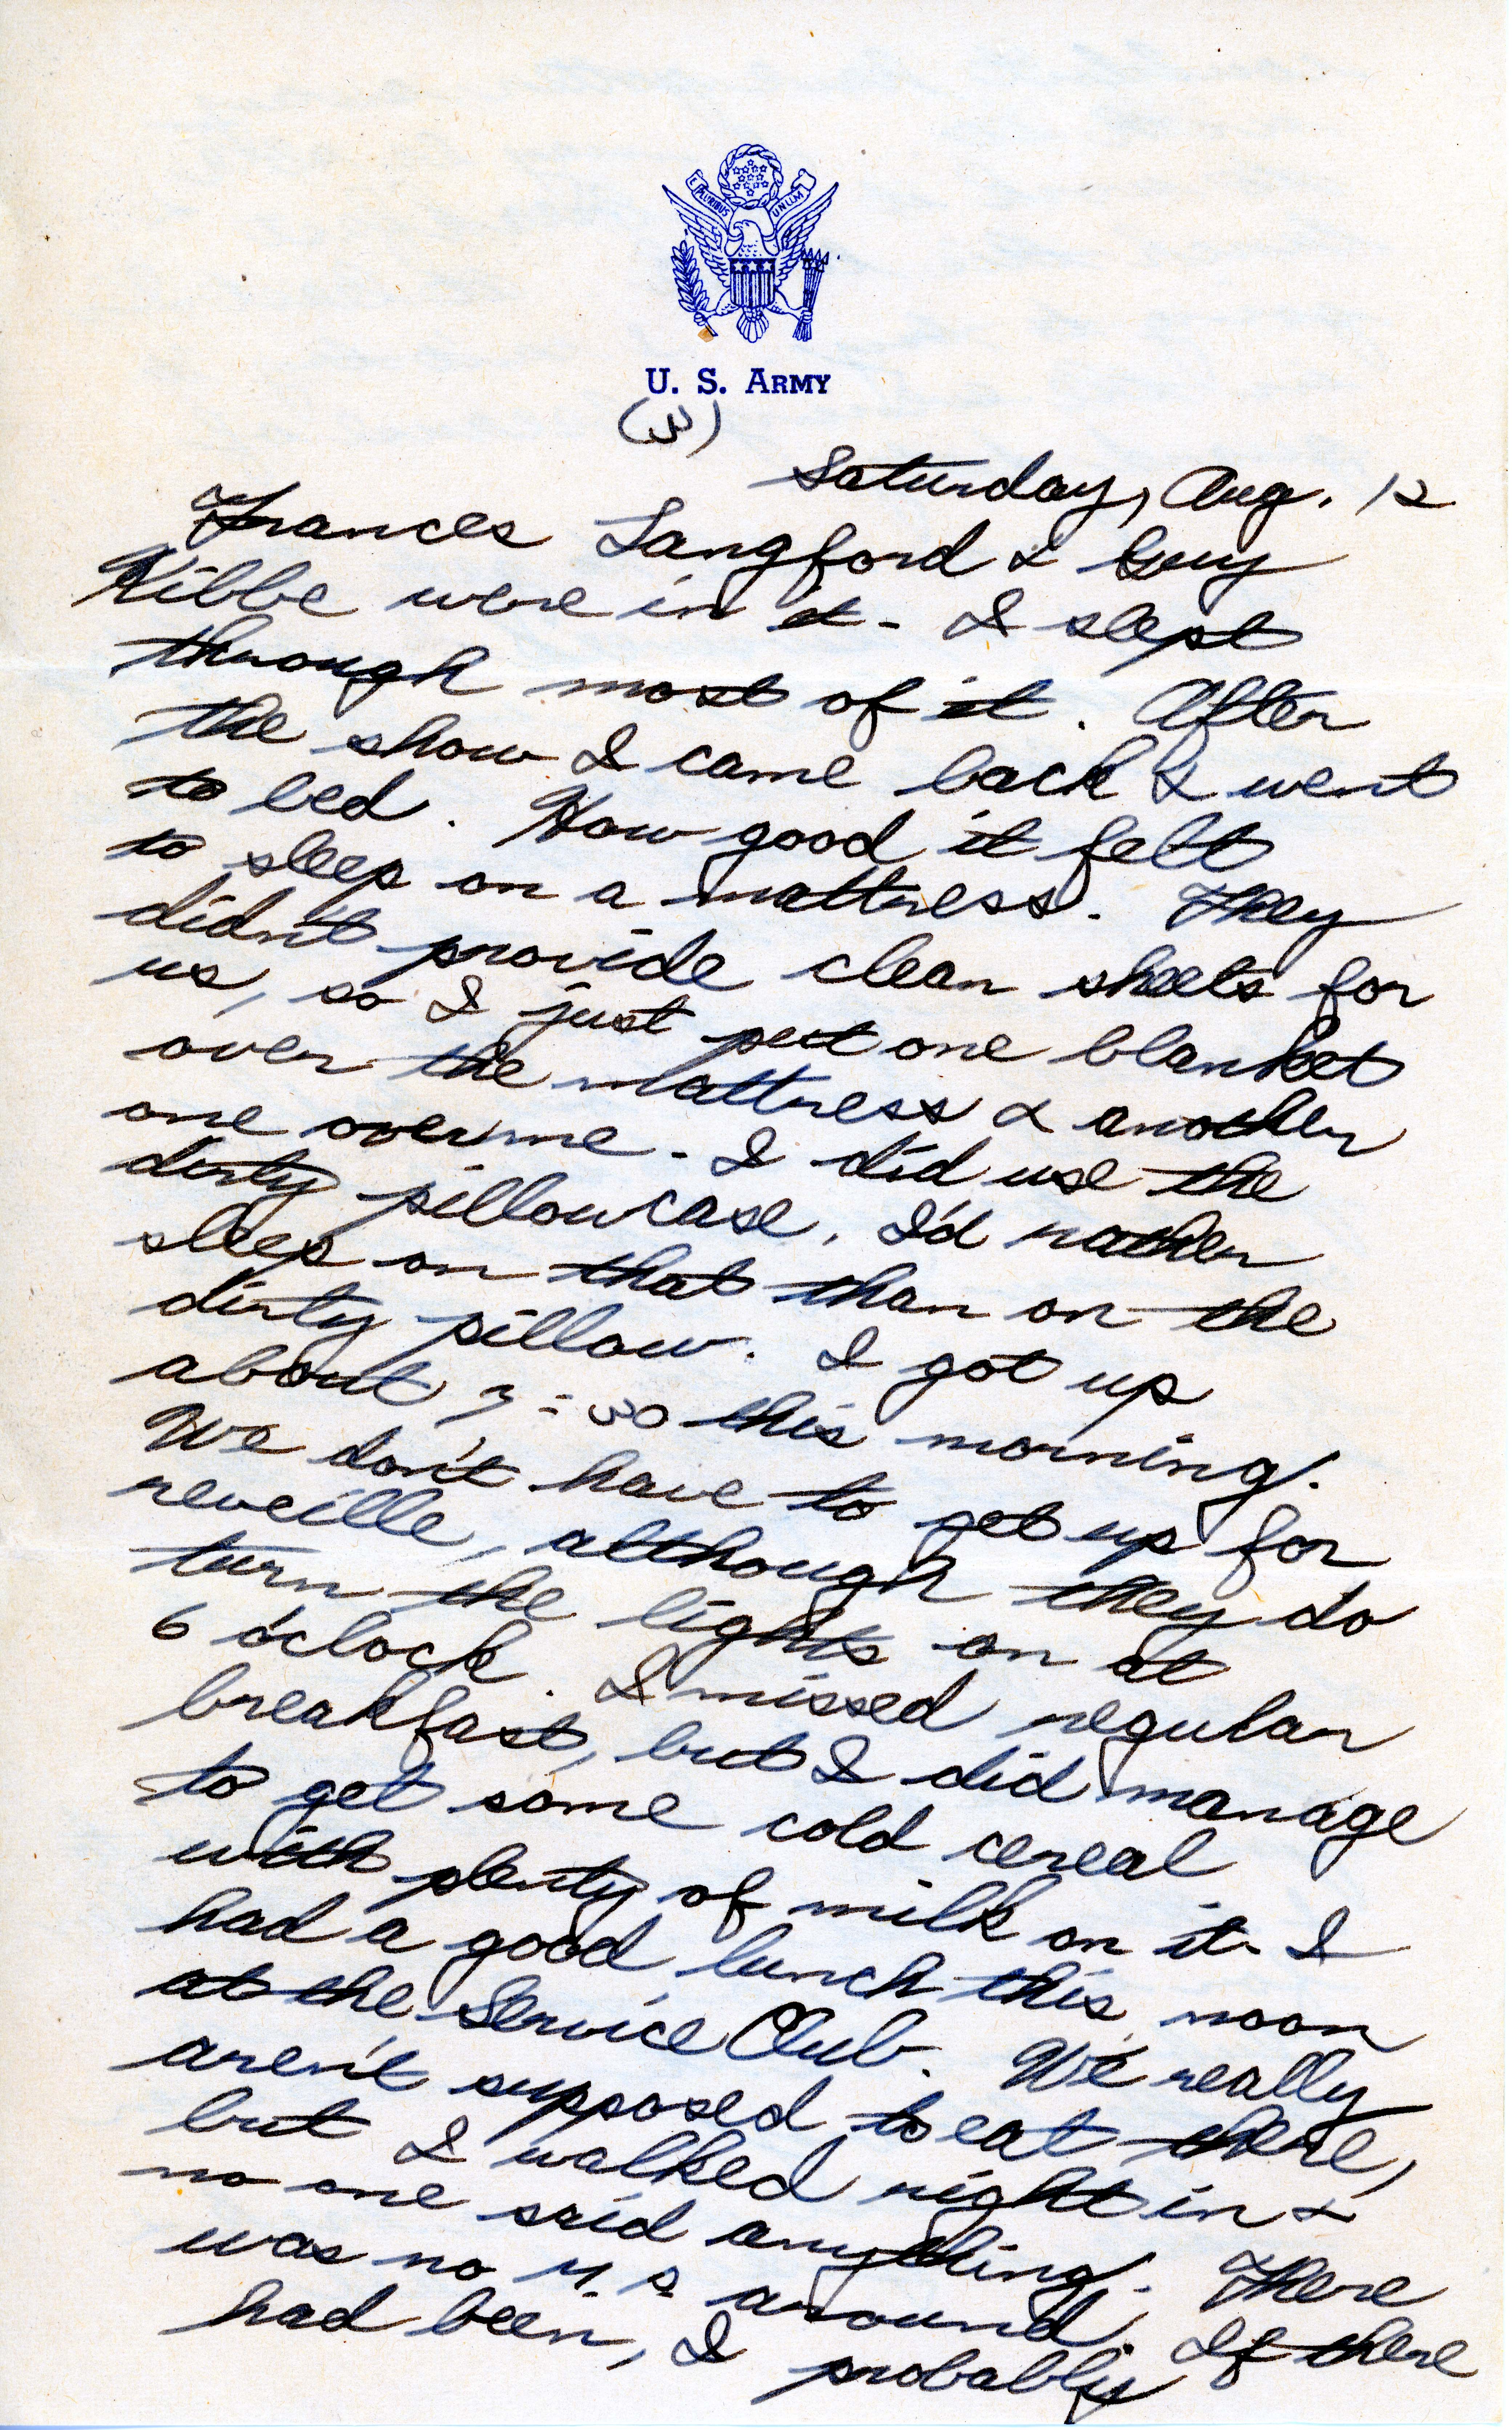 E PLURIBUS UNUM
U. S. ARMY
(3)
Saturday, Aug. 12
Frances Langford & Guy
Kibbe were in it - I slept
through most of it. After
the show I came back & went
to bed. How good it felt
to sleep on a mattress. They
didn't provide clean sheets for
us, so I just put one blanket
over the mattress & another
one over me - I did use the
dirty pillowcase. I'd rather
sleep on that than on the
dirty pillow. I got up
about 7:30 this morning.
We don't have to get up for
reveille, although they do
turn the lights on at
6 o'clock. I missed regular
breakfast, but I did manage
to get some cold cereal
with plenty of milk on it. I
had a good lunch this noon
at the Service Club. We really
aren't supposed to eat there,
but I walked right in &
no one said anything. There
was no M.P. around. If there
had been, I probably